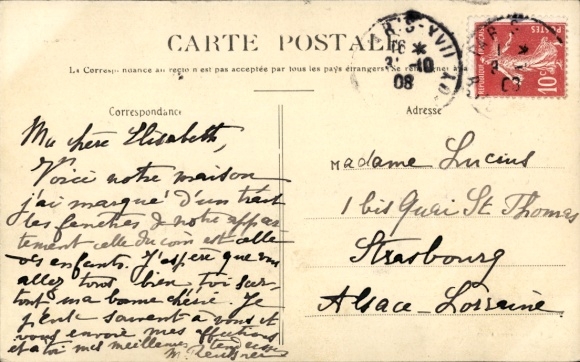 CARTE POSTALE
La Correspondance au recto n'est pas acceptée par tous les pays étrangers
PARIS-XVII
16
31 10
08
POSTES
10c
Correspondance
Adresse
Ma chère Elisabeth,
Voici notre maison
j'ai marqué d'un trait
les fenêtres de notre appar-
tement celle du coin est celle
des enfants. J'espère que vous
allez tous bien, toi sur-
tout ma bonne chérie. Je
pense souvent à vous et
vous envoie mes affections
et à toi mes meilleures tendresses
Madame Lucius
1 bis Quai St Thomas
Strasbourg
Alsace-Lorraine